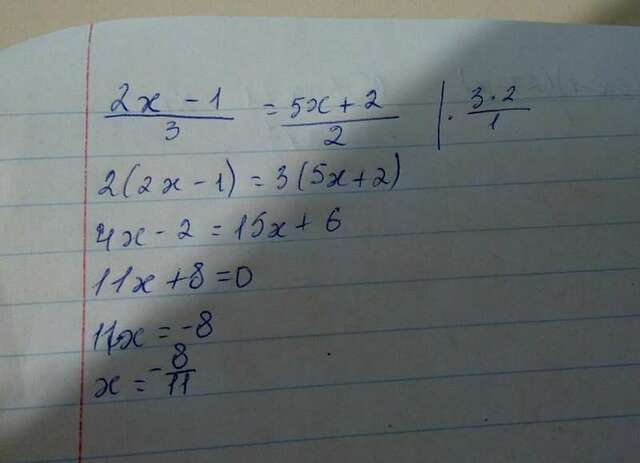 (2x - 1)/3 = (5x + 2)/2 | · (3 · 2)/1
2(2x - 1) = 3(5x + 2)
4x - 2 = 15x + 6
11x + 8 = 0
11x = -8
x = -8/11